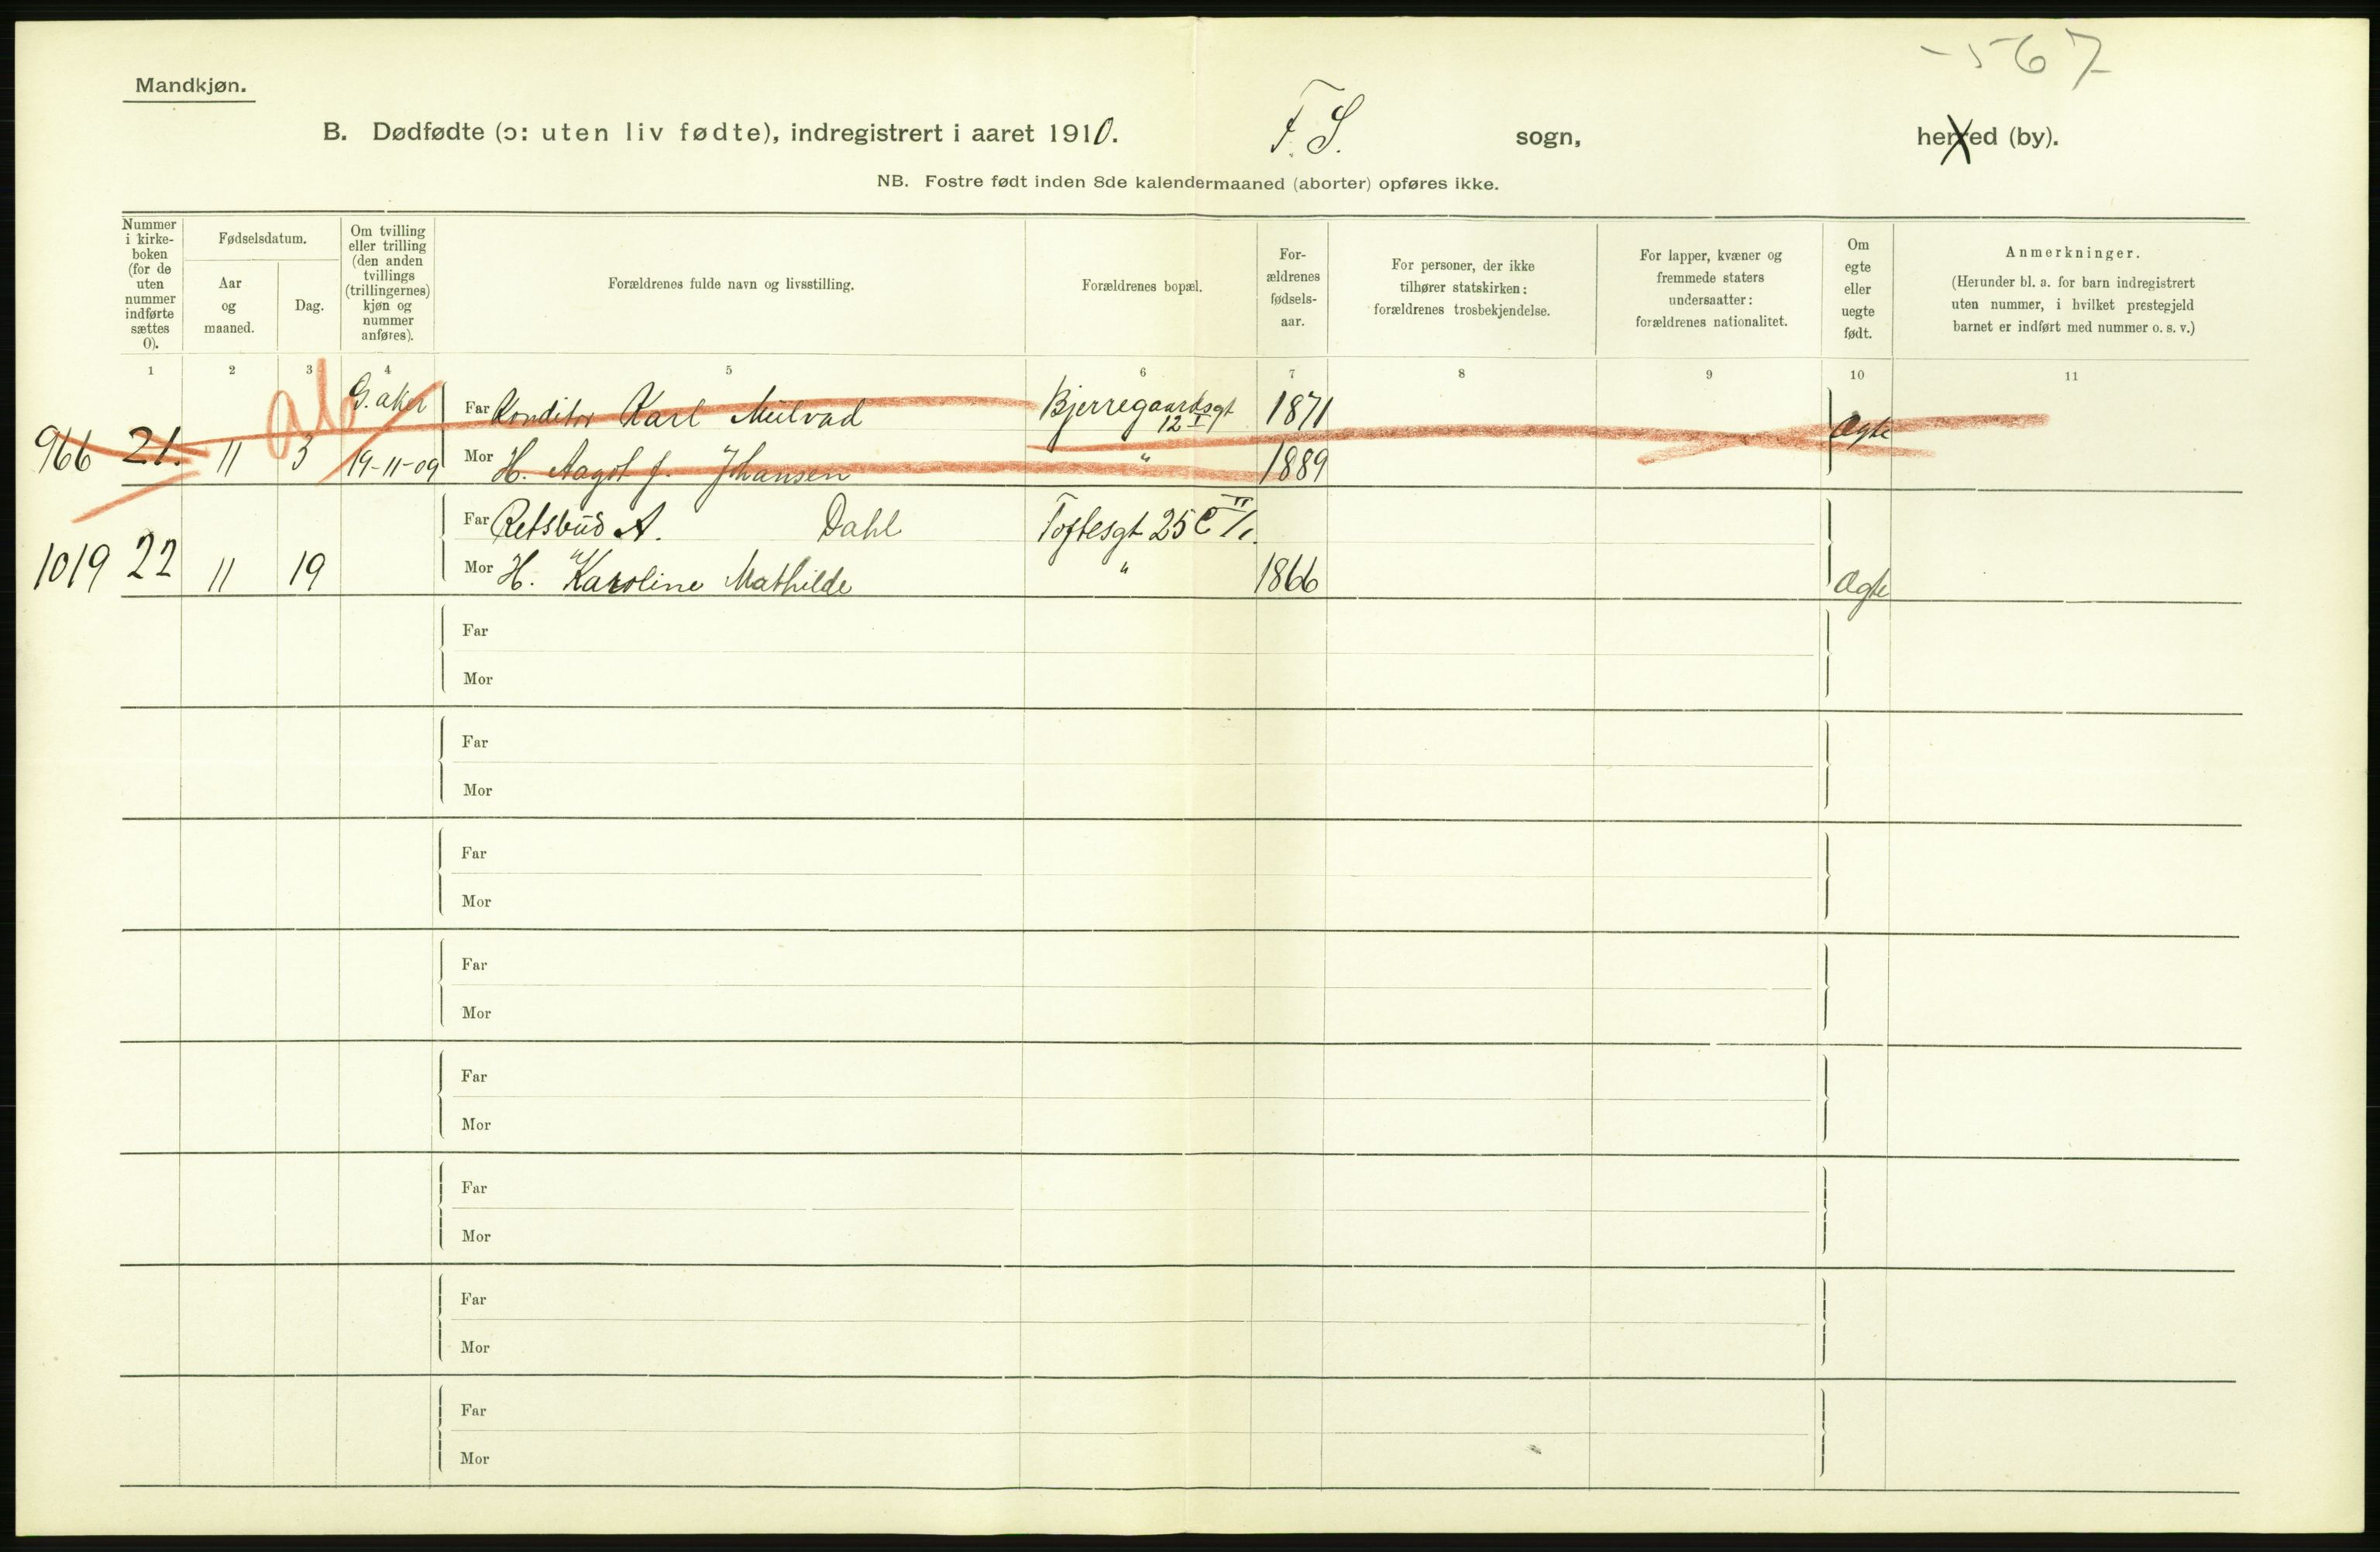 -567
Mandkjøn.
B. Dødfødte (ɔ: uten liv fødte), indregistrert i aaret 1910. F. S. sogn, herred (by).
NB. Fostre født inden 8de kalendermaaned (aborter) opføres ikke.
Nummer i kirke-boken (for de uten nummer indførte sættes 0).
Fødselsdatum.
Aar og maaned.
Dag.
Om tvilling eller trilling (den anden tvillings (trillingernes) kjøn og nummer anføres).
Forældrenes fulde navn og livsstilling.
Forældrenes bopæl.
For-ældrenes fødsels-aar.
For personer, der ikke tilhører statskirken: forældrenes trosbekjendelse.
For lapper, kvæner og fremmede staters undersaatter: forældrenes nationalitet.
Om egte eller uegte født.
Anmerkninger.
(Herunder bl. a. for barn indregistrert uten nummer, i hvilket prestegjeld barnet er indført med nummer o. s. v.)
1 2 3 4 5 6 7 8 9 10 11
G. aker Far Konditor Karl Mülvad Bjerregaardsgt 12 I 1871
966 21. 11 3 19-11-09 Mor H. Aagot f. Johansen " 1889 Ægte
Far Retsbud A. Dahl Toftesgt 25 C II/I.
1019 22 11 19 Mor H. Karoline Mathilde " 1866 Ægte
Far
Mor
Far
Mor
Far
Mor
Far
Mor
Far
Mor
Far
Mor
Far
Mor
Far
Mor